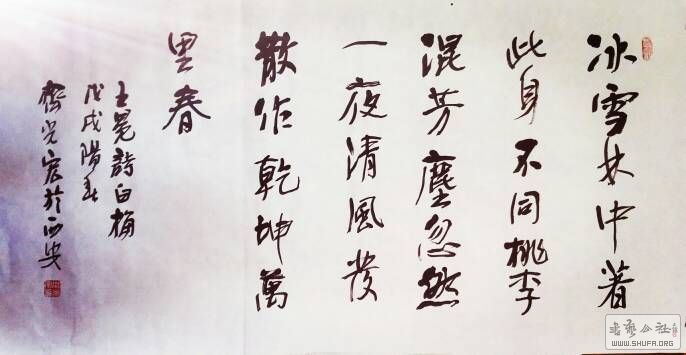 冰雪林中著
此身不同桃李
混芳塵忽然
一夜清風發
散作乾坤萬
里春
王冕詩白梅
戊戌陽春
於西安
书藝公社
WWW.SHUFA.ORG